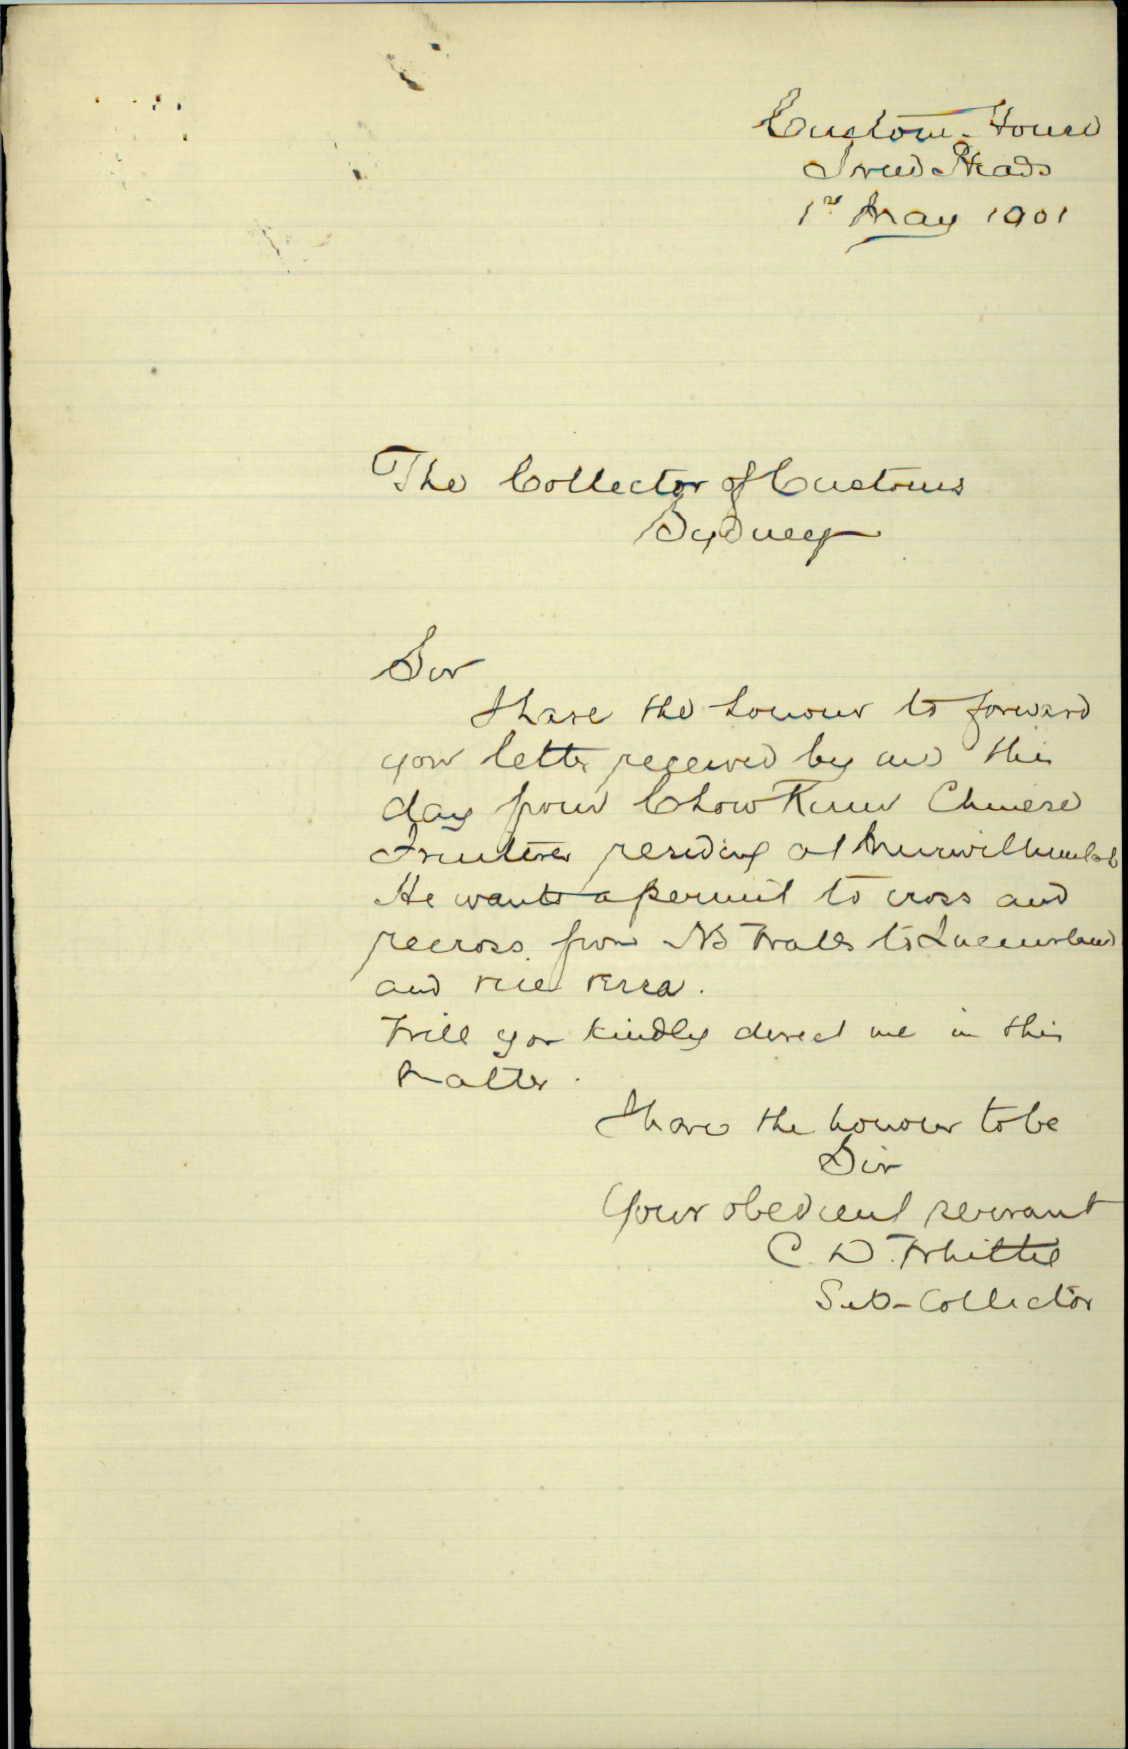 Custom-House
Tweed Heads
1st May 1901
The Collector of Customs
Sydney
Sir
I have the honour to forward
your letter received by me this
day from Chow Kum Chinese
Fruiterer residing at Murwillumbah
He wants a permit to cross and
recross from NS Wales to Queensland
and vice versa.
Will you kindly direct me in this
matter.
I have the honour to be
Sir
Your obedient servant
C. D. Whittle
Sub-Collector